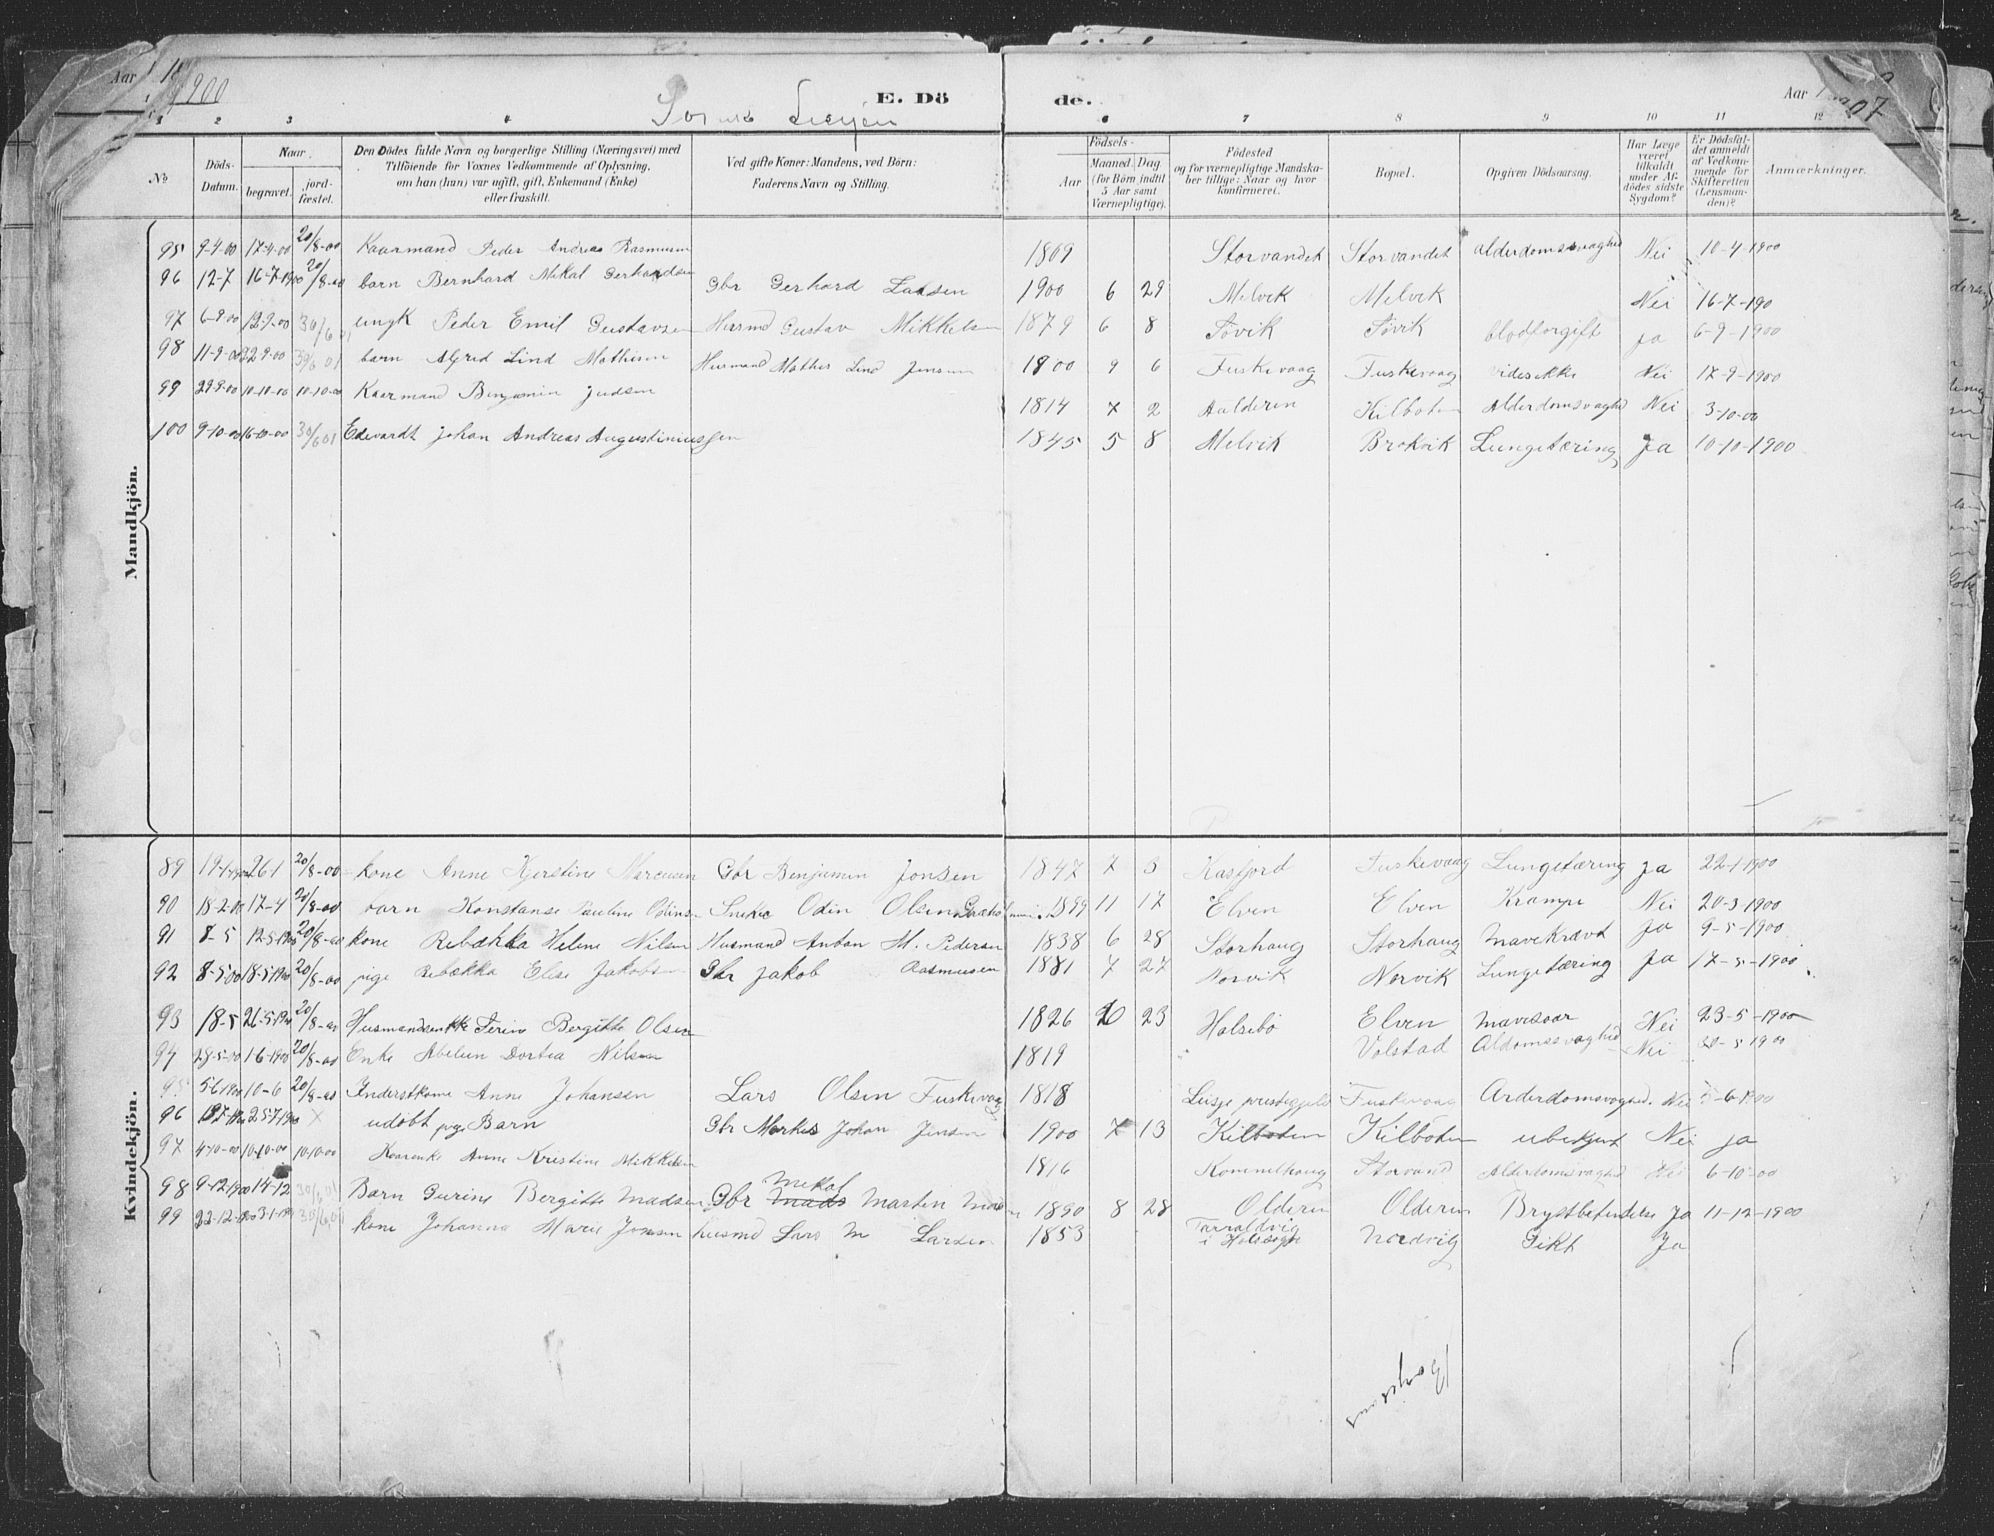 Aar 1900
E. Döde.
Aar
07
1 2 3 4 6 7 8 9 10 11 12
No
Döds-Datum.
Naar
begravet.
jord-fæstet.
Den Dödes fulde Navn og borgerlige Stilling (Næringsvei) med
Tilföiende for Voxnes Vedkommende af Oplysning,
om han (hun) var ugift, gift, Enkemand (Enke)
eller fraskilt.
Ved gifte Koner: Mandens, ved Börn:
Faderens Navn og Stilling.
Födsels-
Aar
Maaned. Dag
(for Börn indtil
5 Aar samt
Værnepligtige).
Födested
og for værnepligtige Mandska-
ber tillige: Naar og hvor
konfirmeret.
Bopæl.
Opgiven Dödsaarsag.
Har Læge
været
tilkaldt
under Af-
dödes sidste
Sygdom?
Er Dödsfal-
det anmeldt
af Vedkom-
mende for
Skifteretten
(Lensman-
den)?
Anmærkninger.
Mandkjön.
95 9-4-00 17-4-00 20/8-00 Kaarmand Peder Andreas Rasmusen 1809 Storvandet Storvandet Alderdomsvaghed Nei 10-4-1900
96 12-7 16-7-1900 20/8-00 barn Bernhard Mekal Gerhardsen Gbr Gerhard Larsen 1900 6 29 Melvik Melvik Nei 16-7-190
97 6-9-00 12-9-00 30/6 01 ungk Peder Emil Gustavsen Husmd Gustav Mikkelsen 1879 6 8 Sövik Sövik blodforgift ja 6-9-1900
98 11-9-00 22-9-00 30/6 01 barn Alfred Lind Mathisen Husmand Mathis Lind Jensen 1800 9 6 Fuskevaag Fuskevaag vides ikke Nei 17-9-1900
99 29-9-00 10-10-00 10-10-00 Kaarmand Benjamin Judsen 1814 7 2 Aalderen Kilboten Alderdomsvaghed Nei 3-10-00
100 9-10-00 16-10-00 30/6 01 Edevardt Johan Andreas Augustiniussen 1845 5 8 Melvik Brokvik Lungetæring Ja 10-10-1900
Kvindekjön.
89 19-1-1900 26-1 20/8-00 kone Anne Kjerstine Marcusen Gbr Benjamin Jonsen 1847 7 3 Kasfjord Fuskevaag Lungetæring ja 22-1-1900
90 18-2-00 17-4 20/8-00 barn Konstanse Pauline Odinsen Snekr Odin Olsen 1899 11 17 Elven Elven Krampe Nei 20-3-1900
91 8-5 12-5-1900 20/8-00 kone Rebækka Helene Nilsen Husmand Anton M. Pedersen 1838 6 28 Storhaug Storhaug Mavekrævt ja 9-5-1900
92 8-5-00 18-5-1900 20/8-00 pige Rebækka Elise Jakobsen Gbr Jakob Rasmusen 1881 7 27 Norvik Norvik Lungetæring ja 17-5-1900
93 18-5 26-5-1900 20/8-00 Husmandsenkke Serine Bergitte Olsen 1826 10 23 Halsebö Elven Mavesaar Nei 23-5-1900
94 28-5-00 1-6-1900 20/8-00 Enke Abelun Dortea Nilsen 1819 Volstad Aldomssvaghed Nei 30-5 1900
95 5-6 1900 10-6 20/8-00 Inderstkone Anne Johansen Lars Olsen Fuskevaag 1818 prestegjeld Fuskevaag Arderdomsvaghed. Nei 5-6-1900
96 25-7-1900 × udöbt pige Barn Gbr Markus Johan Jensen 1900 7 13 Kilboten Kilboten ubekjent Nei ja
97 4-10-00 10-10-00 10-10-00 Kaarenke Anne Kristine Mikkelsen 1816 Kommelhaug Storvand Alderdomsvaghed Nei 6-10-00
98 9-12-1900 14-12 30/6 01 Barn Gurine Bergitte Madsen Gbr Mekal Mads Marten Madsen 1890 8 28 Olderen Olderen Brystbetendelse Ja 11-12-1900
99 22-12-1900 3-1-1901 30/6 01 kone Johanna Marie Jonsen Husmd Lars M Larsen 1853 Tarraldvig i Nordvig Gikt Ja